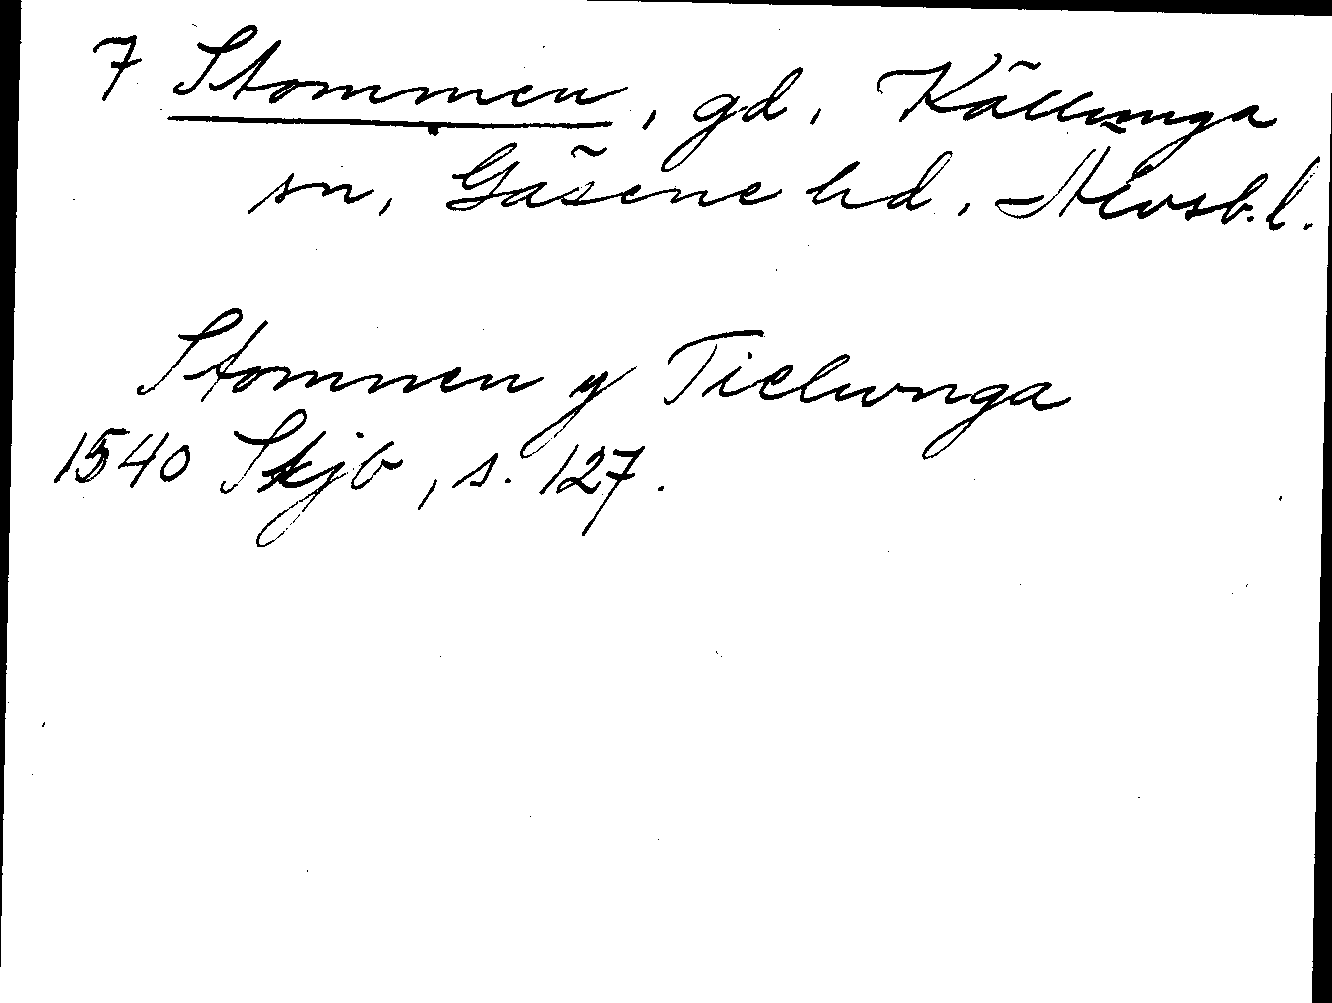 7 Stommen, gd, Källunga
sn, Gäsene hd, Älvsb. l.
Stomnen y Tielunga
1540 Skjb, s. 127.